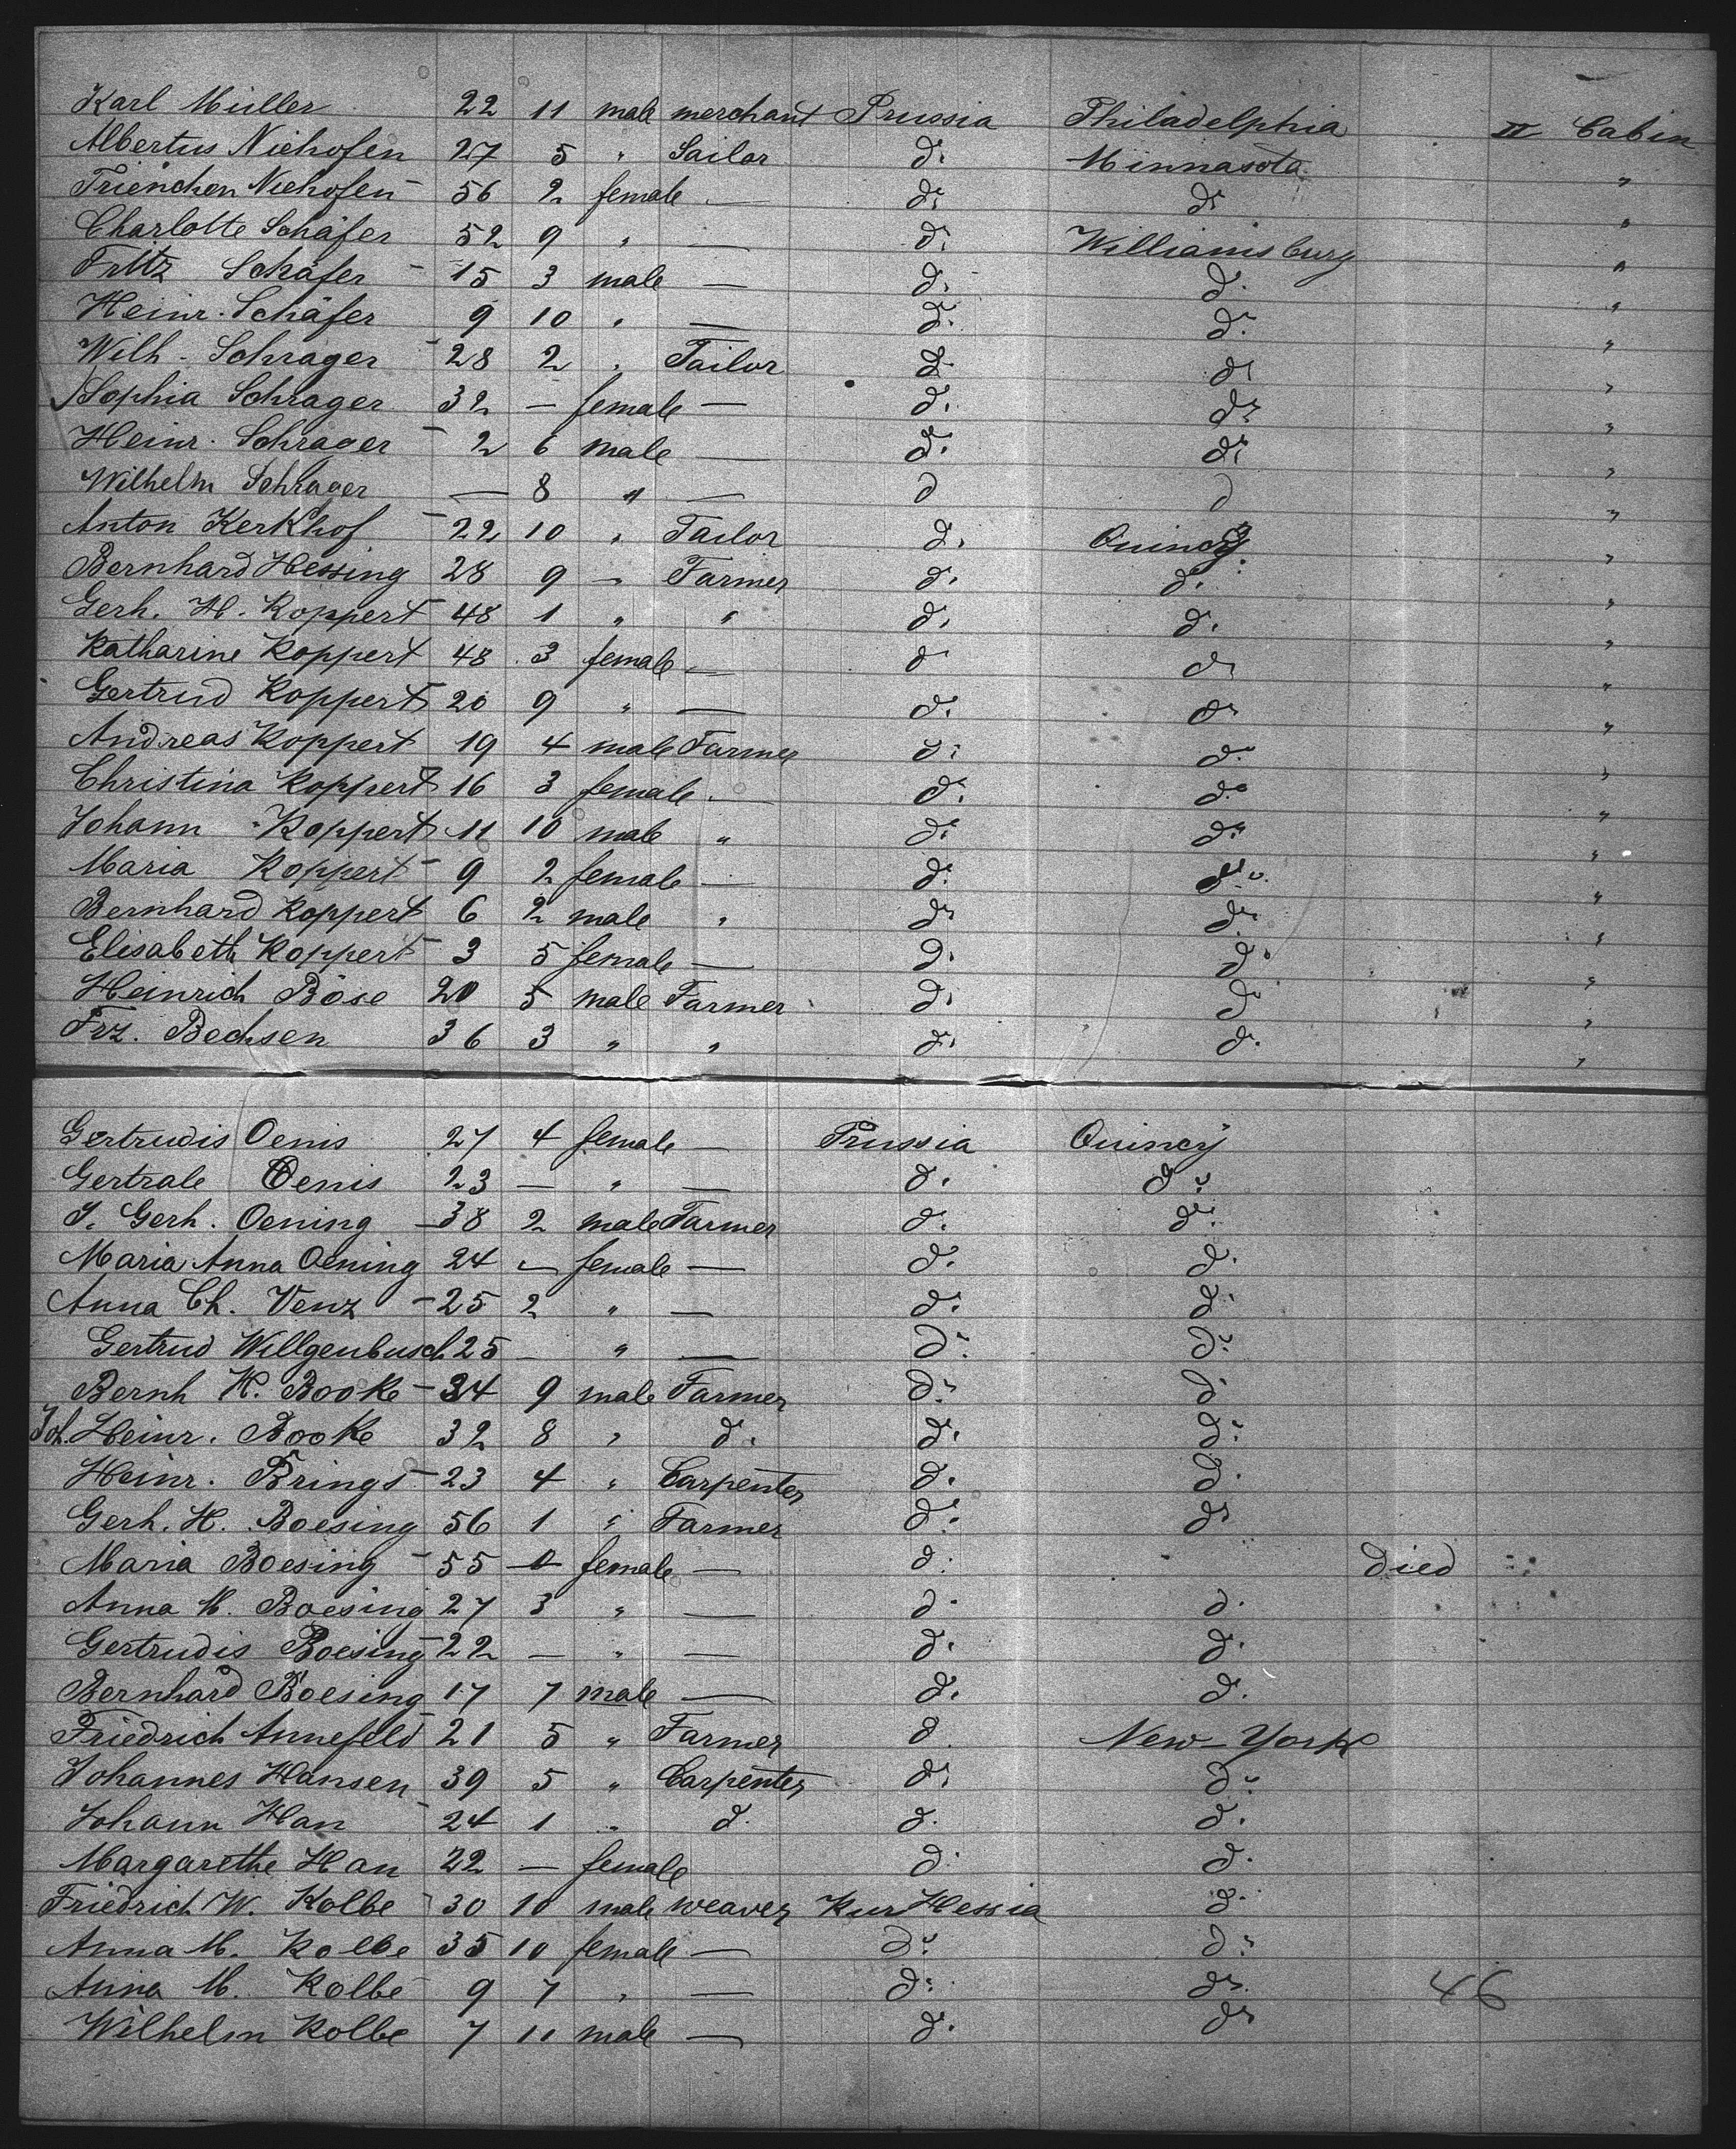 Karl Müller 22 11 male merchant Prussia Philadelphia II Cabin
Albertus Niehofen 27 5 " Sailor d: Minnasota "
Trienchen Niehofen 56 2 female — d: d: "
Charlotte Schäfer 52 9 " — d: Williamsburg "
Fritz Schäfer - 15 3 male — d: d: "
Heinr. Schäfer 9 10 " — d: d: "
Wilh. Schrager - 28 2 " Tailor d: d: "
Sophia Schrager 32 — female — d: d: "
Heinr. Schrager - 2 6 male — d: d: "
Wilhelm Schrager — 8 " — d d "
Anton Kerkhof - 22 10 " Tailor d: Quincy "
Bernhard Hessing 28 9 " Farmer d: d: "
Gerh. H. Koppert - 48 1 " " d: d: "
Katharine Koppert 48 3 female — d: d: "
Gertrud Koppert 20 9 " — d: d: "
Andreas Koppert 19 4 male Farmer d: d: "
Christina Koppert 16 3 female — d: d: "
Johann Koppert 11 10 male " d: d: "
Maria Koppert - 9 2 female — d: d: "
Bernhard Koppert 6 2 male " d: d: "
Elisabeth Koppert - 3 5 female — d: d: "
Heinrich Böse 20 5 male Farmer d: d: "
Frz. Bechsen 36 3 " " d: d: "
Gertrudis Oenis 27 4 female — Prussia Quincy
Gertrale Oenis 23 — " — d: d:
J. Gerh. Oening - 38 2 male Farmer d: d:
Maria Anna Oening 24 — female — d: d:
Anna Ch. Venz - 25 2 " — d: d:
Gertrud Willgenbusch 25 — " — d: d:
Bernh H. Booke - 34 9 male Farmer d: d:
Joh. Heinr. Booke 32 8 " d. d: d:
Heinr. Brings - 23 4 " Carpenter d: d:
Gerh. H. Boesing 56 1 " Farmer d: d:
Maria Boesing - 55 0 female — d: died
Anna M. Boesing 27 3 " — d: d:
Gertrudis Boesing - 22 — " — d: d:
Bernhard Boesing 17 7 male — d: d:
Friedrich Annefeld 21 5 " Farmer d New-York
Johannes Hansen 39 5 " Carpenter d: d:
Johann Han - 24 1 " d. d. d:
Margarethe Han 22 — female d: d:
Friedrich W. Kolbe - 30 10 male weaver Kur Hessia d:
Anna M. Kolbe 35 10 female — d: d:
Anna M. Kolbe - 9 7 " — d: d: 46
Wilhelm Kolbe 7 11 male — d: d: